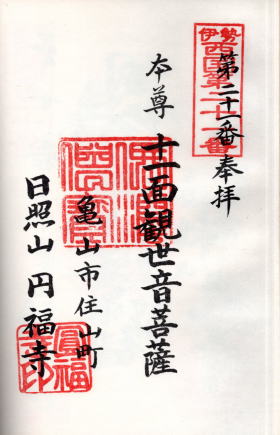 伊勢
西国第二十一番
第二十一番奉拝
本尊 十一面観世音菩薩
亀山市住山町
日照山 円福寺
圓福寺印